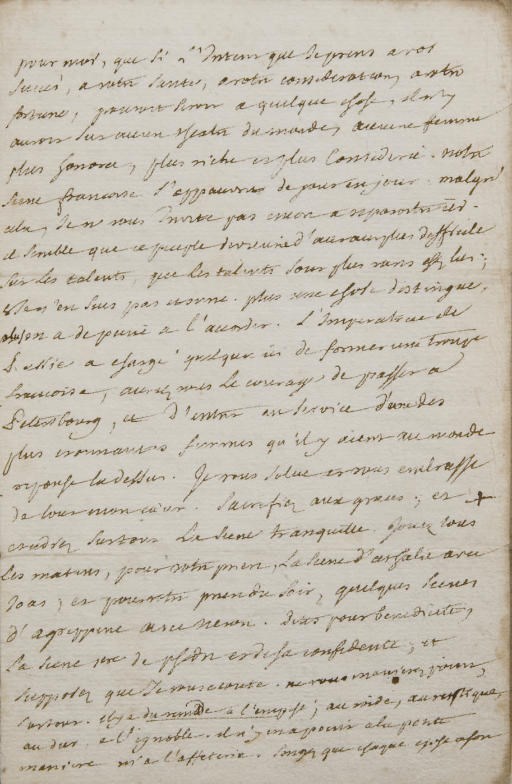 pour moi, que si l'interet que je prens a vos
succès, a votre santé, a votre consideration, a votre
fortune, pouvoit servir a quelque chose, il n'y
auroit sur aucun theatre du monde, aucune femme
plus honorée, plus riche et plus considerée. notre
scene françoise s'appauvrit de jour en jour. malgré
cela, je ne vous invite pas encor a reparoitre ici.
il semble que ce peuple devienne d'autant plus difficile
sur les talents, que les talents sont plus rares chez lui;
je n'en suis pas etonné. plus une chose distingue,
plus on a de peine a l'accorder. L'Imperatrice de
Russie a chargé quelqu'un ici de former une troupe
françoise, auriez vous le courage de passer a
Petersbourg, et d'entrer au service d'une des
plus etonnantes femmes qu'il y aient au monde
reponse la dessus. Je vous salue et vous embrasse
de tout mon cœur. Sacrifiez aux graces; et
etudiez surtout la scene tranquille. Jouez tous
les matins, pour votre priere, la scene d'athalie avec
Joas; et pour votre priere du soir, quelques scenes
d'agrippine avec neron. Dites pour benedicite,
la scene 1ere de phedre et de sa confidente; et
supposez que je vous ecoute. ne vous manierez point,
surtout. il y a du remede a l'empesé; au roide, au rustique,
au dur, a l'ignoble. il n'y en a point a la petite
maniere ni a l'affeterie. Songez que chaque chose a son